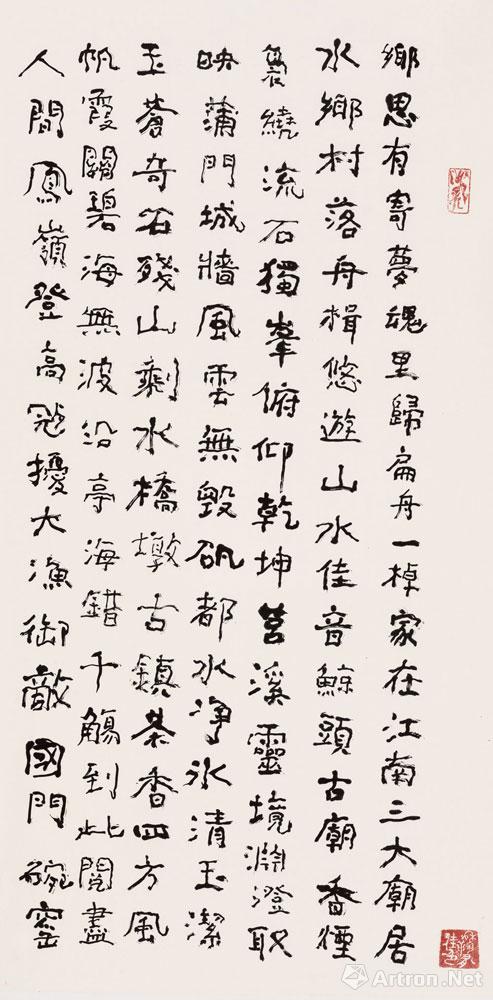 鄉思有寄夢魂里歸扁舟一棹家在江南三大廟居
水鄉村落舟楫悠遊山水佳音鯨頭古廟香煙
裊繞流石獨峯俯仰乾坤莒溪靈境淵澄取
映蒲門城牆風雲無毀矾都水净冰清玉潔
玉蒼奇石殘山剩水橋墩古鎮茶香四方風
帆霞關碧海無波沿亭海錯千觴到此閱盡
人間鳳嶺登高寇擾大漁御敵國門碗窰
Artron.Net